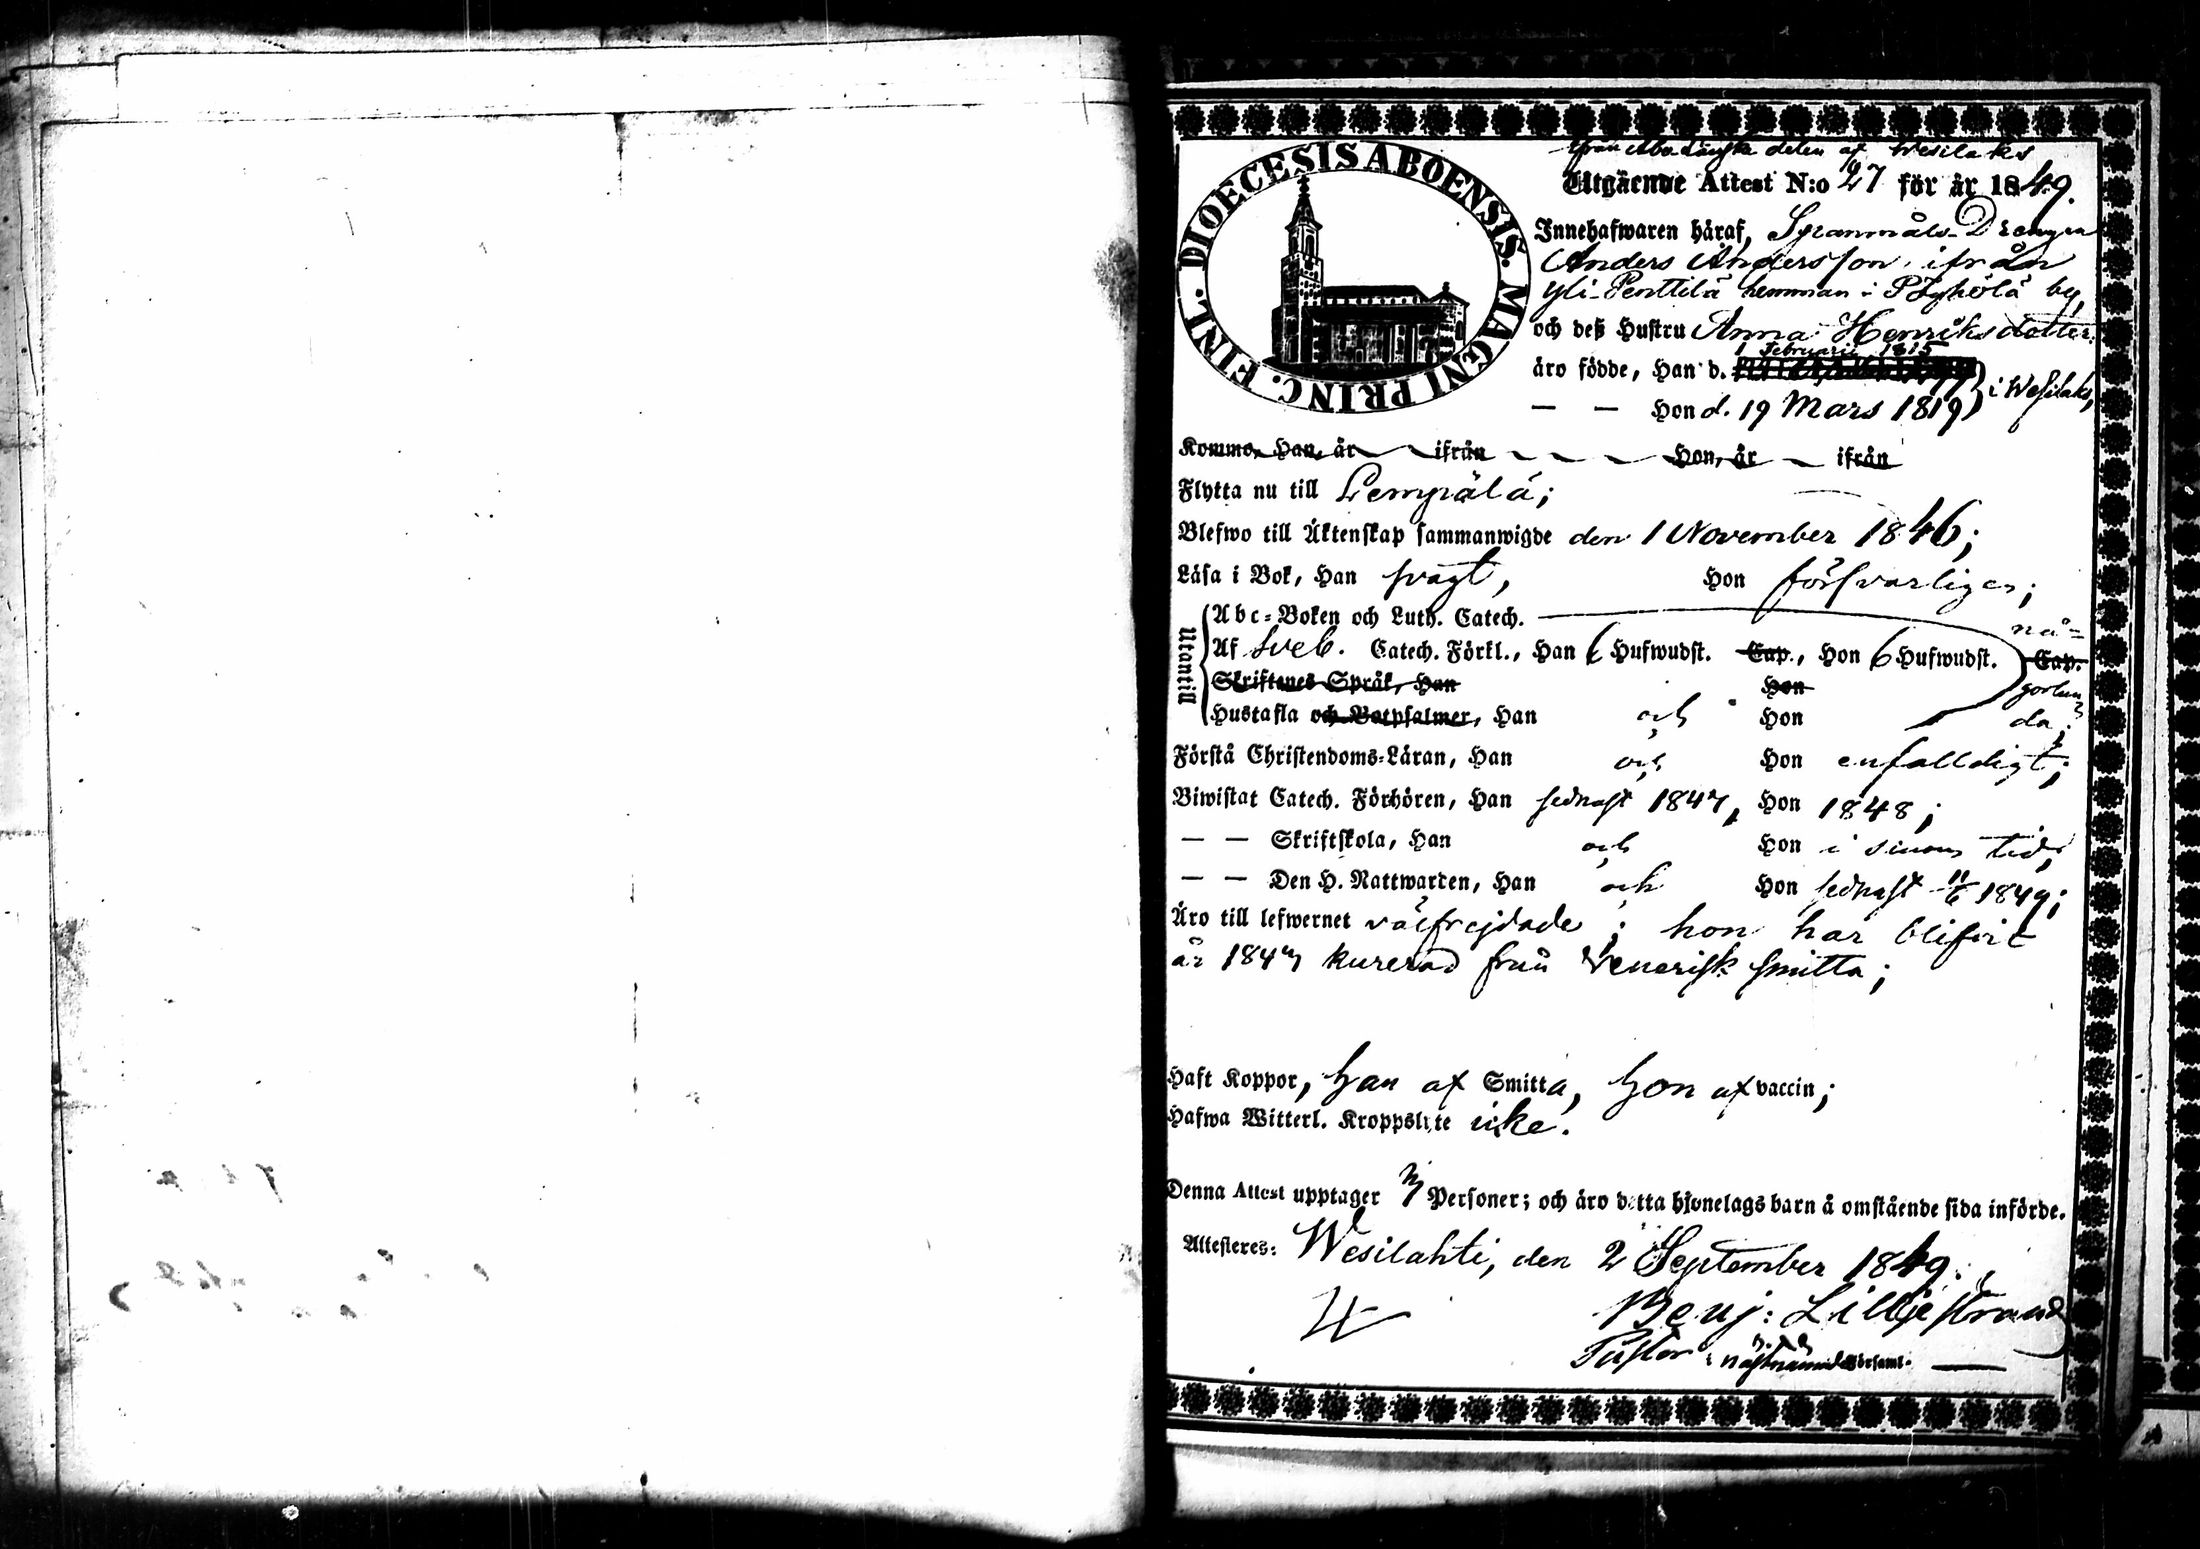 DIOECESIS ABOENSIS. MAGNI PRINC. FINL.
från Abo Länska delen af Wesilaks
Utgående Attest N:o 27 för år 1849.
Innehafwaren häraf, Spanmåls-Drengen
Anders Andersson, ifrån
Yli-Penttilä hemman i Pyhölä by,
och deß Hustru Anna Henriksdotter
1 Februarii 1815
äro födde, Han d.
— — Hon d. 19 Mars 1819 i Wesilaks,
Komme, Han, år ifrån Hon, år ifrån
Flytta nu till Lempälä;
Blefwo till Äktenskap sammanwigde den 1 November 1846;
Läsa i Bok, Han svagt, Hon försvarligen;
Utantill
Abc-Boken och Luth. Catech.
Af Sveb. Catech. Förkl., Han 6 Hufwudst. Cap., Hon 6 Hufwudst. Cap. nå-
Skriftenes Språk, Han Hon gorlun
Hustafla och Botpsalmer, Han och Hon da;
Förstå Christendoms-Läran, Han och Hon enfalldigt;
Biwistat Catech. Förhören, Han sednast 1847, Hon 1848;
— — Skriftskola, Han och Hon i sinom tid;
— — Den H. Nattwarden, Han och Hon sednast 11/6 1849;
Äro till lefwernet välfrejdade; hon har blifvit
år 1847 kurerad från Venerisk smitta;
Haft Koppor, han af Smitta, hon af vaccin;
Hafwa Witterl. Kroppslyte icke.
Denna Attest upptager Personer; och äro detta hjonelags barn å omstående sida införde.
Attesteres: Wesilahti, den 2 September 1849.
Benj: Lilljestrand
Pastor i nästnämnde Församl.